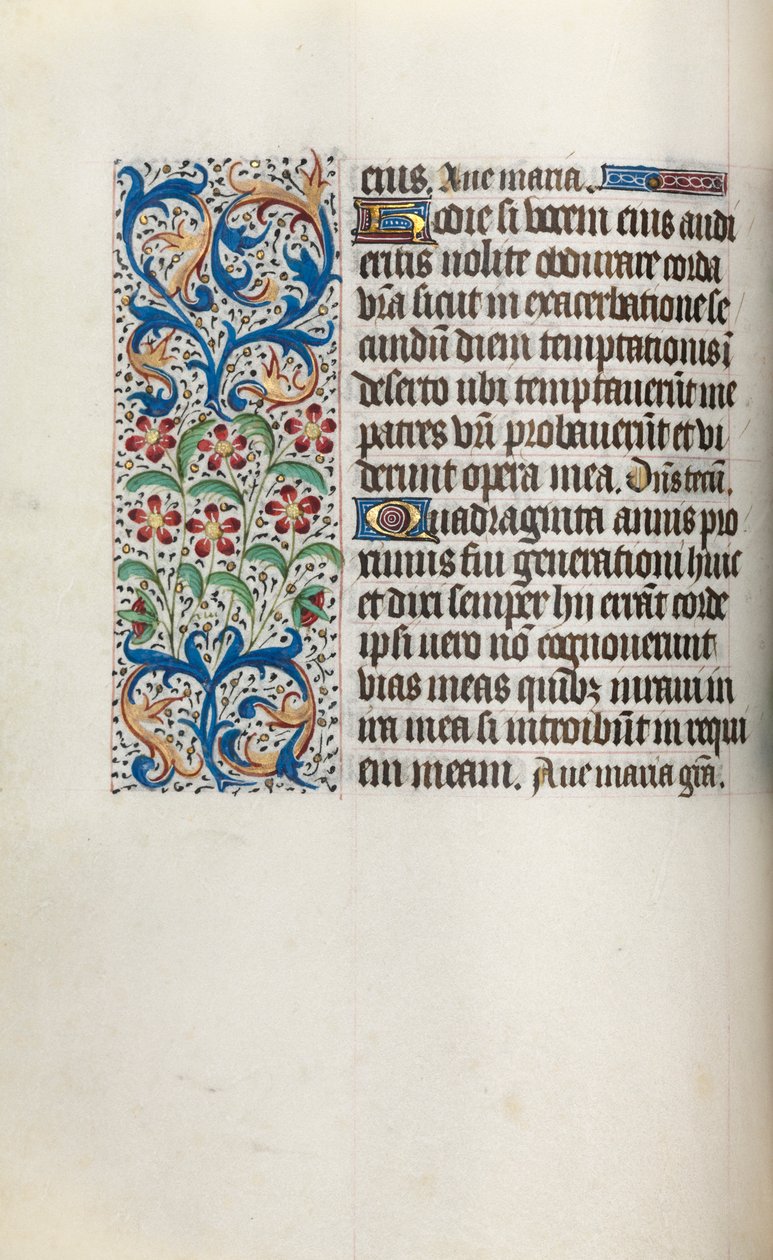 eius. Aue maria.
Hodie si vocem eius audi
eritis nolite obdurare corda
vr̃a sicut in exacerbatione se
cundũ diem temptationis ĩ
deserto ubi temptauerũt me
patres vr̃i probauerũt et vi
derunt opera mea. Dñs tecũ.
Quadraginta annis pro
ximus fui generationi huic
et dixi semper hii errãt corde
ipsi uero nõ cognouerunt
vias meas quibꝫ iuraui in
ira mea si introibũt in requi
em meam. Aue maria grã.